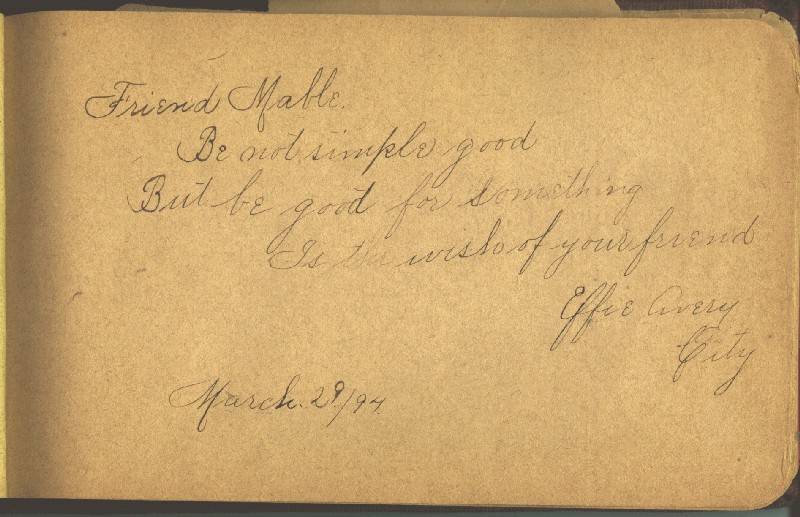 Friend Mable.
Be not simple good
But be good for something
Is the wish of your friend
Effie Avery
City
March. 29/94